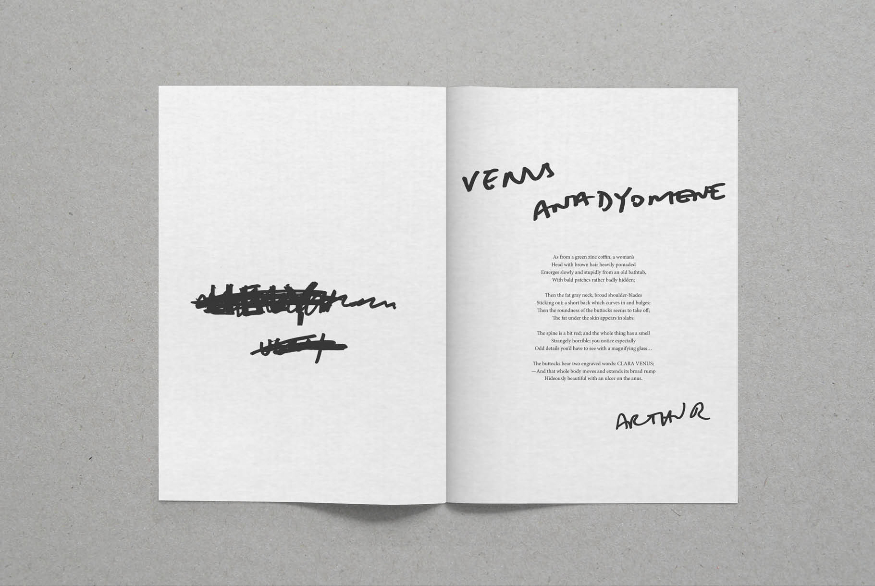 VENUS
ANADYOMENE
As from a green zinc coffin, a woman's
Head with brown hair heavily pomaded
Emerges slowly and stupidly from an old bathtub,
With bald patches rather badly hidden;
Then the fat gray neck, broad shoulder-blades
Sticking out; a short back which curves in and bulges;
Then the roundness of the buttocks seems to take off;
The fat under the skin appears in slabs:
The spine is a bit red; and the whole thing has a smell
Strangely horrible; you notice especially
Odd details you'd have to see with a magnifying glass...
The buttocks bear two engraved words: CLARA VENUS;
—And that whole body moves and extends its broad rump
Hideously beautiful with an ulcer on the anus.
ARTHUR